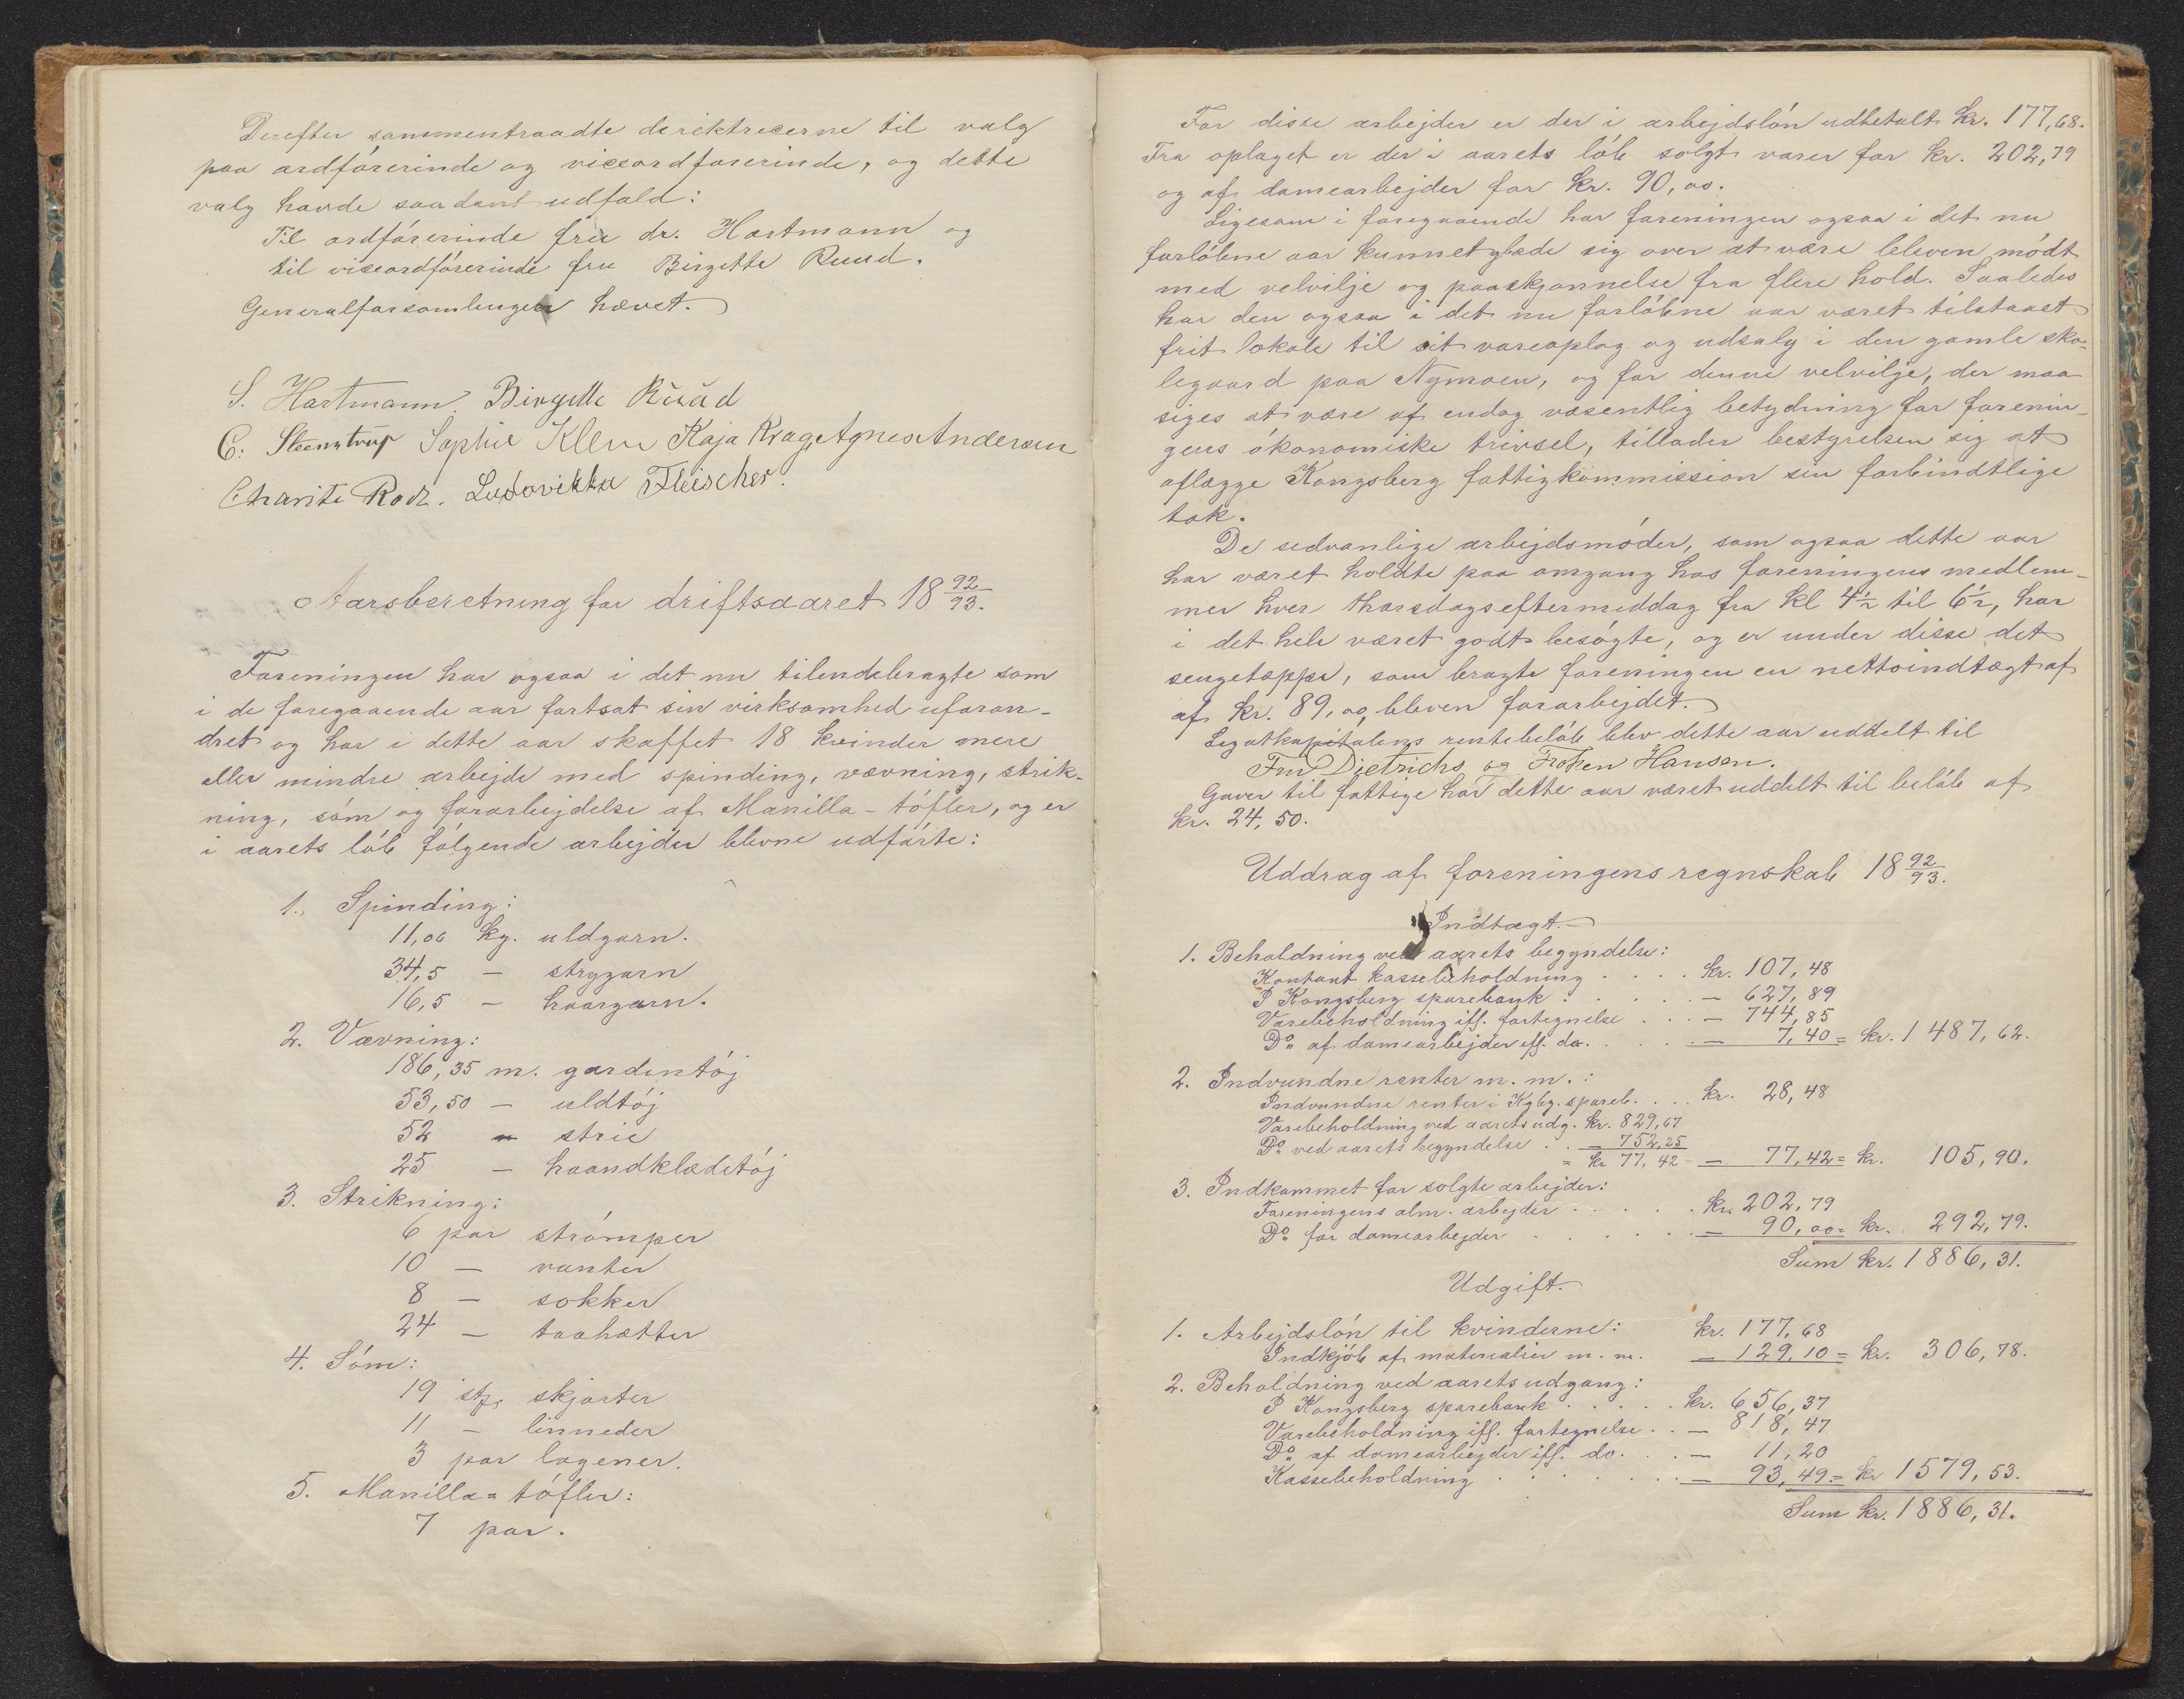 Derefter sammentraadte direktricerne til valg
paa ordførerinde og viceordførerinde, og dette
valg havde saadant udfald:
Til ordførerinde fru dr. Hartmann og
til viceordførerinde fru Birgitte Ruud.
Generalforsamlingen hævet.
S. Hartmann. Birgitte Ruud
C. Steenstrup Sophie Klem Kaja Krag, Agnes Andersen
Charite Rodz. Ludovikka Fleischer.
Aarsberetning for driftsaaret 18 92/93.
Foreningen har ogsaa i det nu tilendebragte som
i de foregaaende aar fortsat sin virksomhed uforan-
dret og har i dette aar skaffet 18 kvinder mere
eller mindre arbejde med spinding, vævning, strik-
ning, søm og forarbejdelse af Manilla-tøfler, og er
i aarets løb følgende arbejder blevne udførte:
1. Spinding:
11,00 kg. uldgarn.
34,5 — strygarn
16,5 — haargarn.
2. Vævning:
186,35 m. gardintøj
53,50 — uldtøj
52 — strie
25 — haandklædetøj
3. Strikning:
6 par strømper
10 — vanter
8 — sokker
24 — taahætter
4. Søm:
19 stk. skjorter
11 — linneder
3 par lagener.
5. Manilla=tøfler:
7 par.
For disse arbejder er der i arbejdsløn udbetalt kr. 177,68.
Fra oplaget er der i aarets løb solgt varer for kr. 202,79
og af damearbejder for kr. 90,00.
Ligesom i foregaaende har foreningen ogsaa i det nu
forløbne aar kunnet glæde sig over at være bleven mødt
med velvilje og paaskjønnelse fra flere hold. Saaledes
har den ogsaa i det nu forløbne aar været tilstaaet
frit lokale til sit vareoplag og udsalg i den gamle sko-
legaard paa Nymoen, og for denne velvilje, der maa
siges at være af endog væsentlig betydning for forenin-
gens økonomiske trivsel, tillader bestyrelsen sig at
aflægge Kongsberg fattigkommission sin forbindtlige
tak.
De sedvanlige arbejdsmøder, som ogsaa dette aar
har været holdte paa omgang hos foreningens medlem-
mer hver thorsdagseftermiddag fra kl 4½ til 6½, har
i det hele været godt besøgte, og er under disse det
sengetæppe, som bragte foreningen en nettoindtægt af
af kr. 89,00, bleven forarbejdet.
Legatkapitalens rentebeløb blev dette aar uddelt til
Fru Dietrichs og Frøken Hansen.
Gaver til fattige har dette aar været uddelt til beløb af
kr. 24,50.
Uddrag af foreningens regnskab 18 92/93.
Indtægt.
1. Beholdning ved aarets begyndelse:
Kontant kassebeholdning . . . . kr. 107,48
I Kongsberg sparebank . . . . . — 627,89
Varebeholdning ifl. fortegnelse . . . — 744,85
Do. af damearbejder ifl. do. . . . . — 7,40 = kr. 1487,62.
2. Indvundne renter m. m.:
Indvundne renter i Kgbg. spareb. . . . kr. 28,48
Varebeholdning ved aarets udg. kr. 829,67
Do. ved aarets begyndelse . . — 752,25
= kr 77,42 — — 77,42 = kr. 105,90.
3. Indkommet for solgte arbejder:
Foreningens alm. arbejder . . . . . kr. 202,79
Do. for damearbejder . . . . . . — 90,00 = kr. 292,79.
Sum kr. 1886,31.
Udgift.
1. Arbejdsløn til kvinderne: kr. 177,68
Indkjøb af materialier m. m. — 129,10 = kr. 306,78.
2. Beholdning ved aarets udgang:
I Kongsberg sparebank . . . . . kr. 656,37
Varebeholdning ifl. fortegnelse . . — 818,47
Do. af damearbejder ifl. do. . . . — 11,20
Kassebeholdning . . . . . . . — 93,49 = kr 1579,53.
Sum kr. 1886,31.